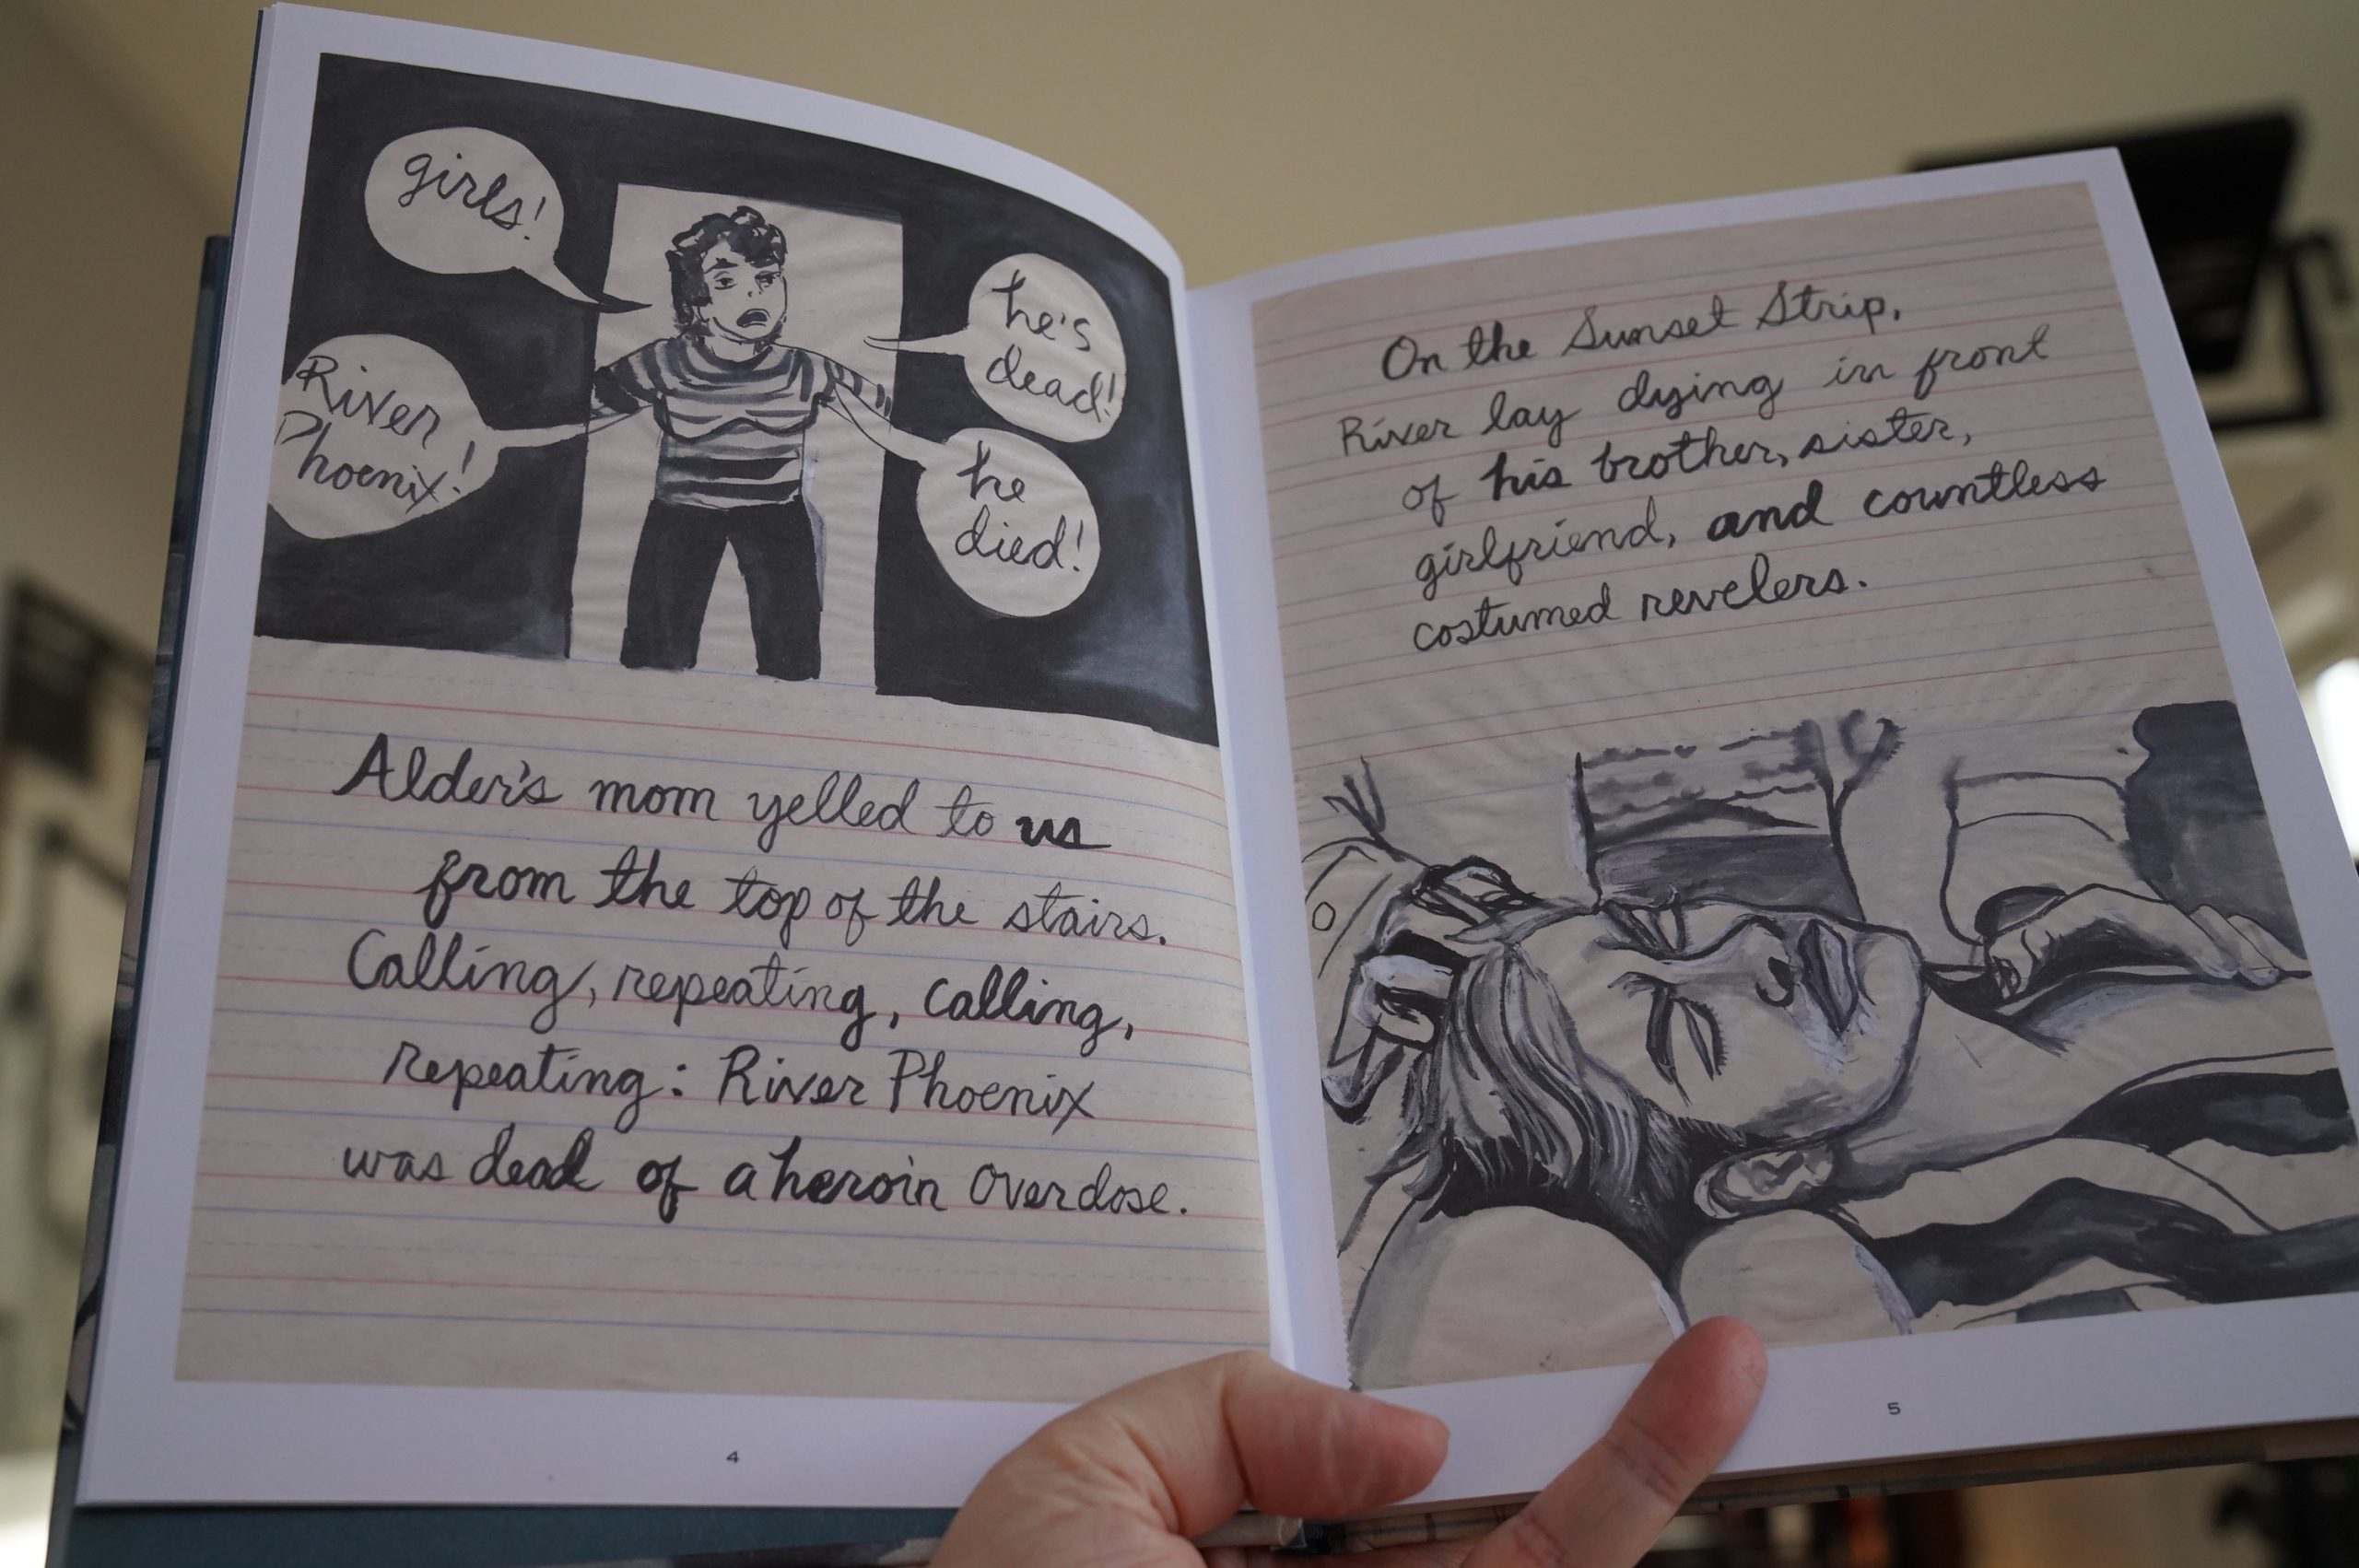 girls!
River
Phoenix!
he's
dead!
he
died!
Alder's mom yelled to us
from the top of the stairs.
Calling, repeating, calling,
repeating: River Phoenix
was dead of a heroin overdose.
4
On the Sunset Strip,
River lay dying in front
of his brother, sister,
girlfriend, and countless
costumed revelers.
5